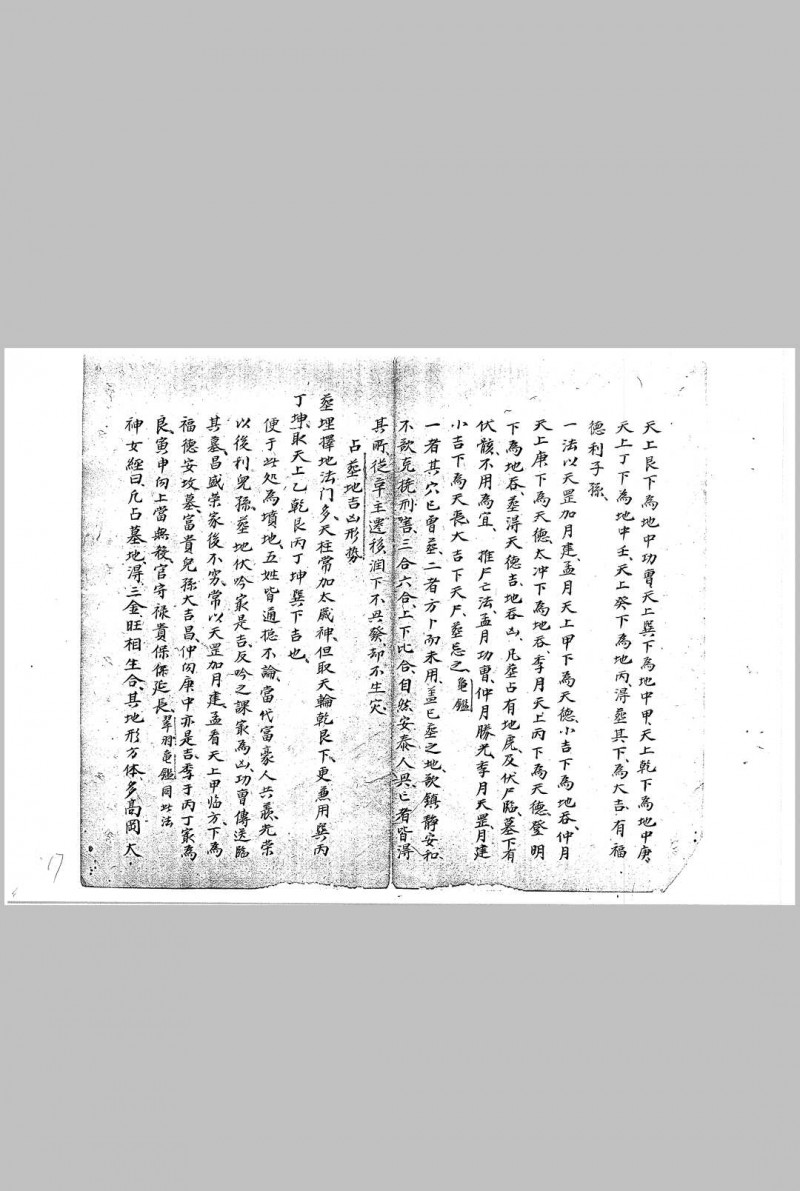 天上艮下為地中功曹天上巽下為地中甲天上乾下為地中庚
天上丁下為地中壬天上癸下為地丙得葬其下為大吉有福
德利子孫
一法以天罡加月建孟月天上甲下為天德小吉下為地吞仲月
天上庚下為天德太冲下為地吞季月天上丙下為天德登明
下為地吞葬得天德吉地吞凶凡葬占有地虎及伏尸臨墓下有
伏骸不用為宜 推尸亡法孟月功曹仲月勝光季月天罡月建
小吉下為天喪大吉下天尸葬忌之龜鑑
一者其穴已曾葬二者方卜而未用盖已葬之地欲鎮靜安和
不欲克撓刑害三合六合上下比合自然安泰人吳亡者皆得
其所從辛主遷移潤下不吳發却不生灾
占葬地吉凶形勢
葬埋擇地法门多天柱常加太歲神但取天輪乾艮下更兼用巽丙
丁坤取天上乙乾艮丙丁坤巽下吉也
便于此处為墳地五姓皆通摠不論當代富豪人共羡光荣
以後利兒孫葬地伏吟家是吉反吟之課家為凶功曹傳送臨
其墓昌盛荣家後不穷常以天罡加月建孟看天上甲临方下為
福德安坟墓富貴兒孫大吉昌仲向庚中亦是吉季于丙丁家為
良寅申向上當無殺官守禄貴保保延長翠羽龜鑑同此法
神女經曰凡占墓地得三金旺相生合其地形方体多高岡大
17